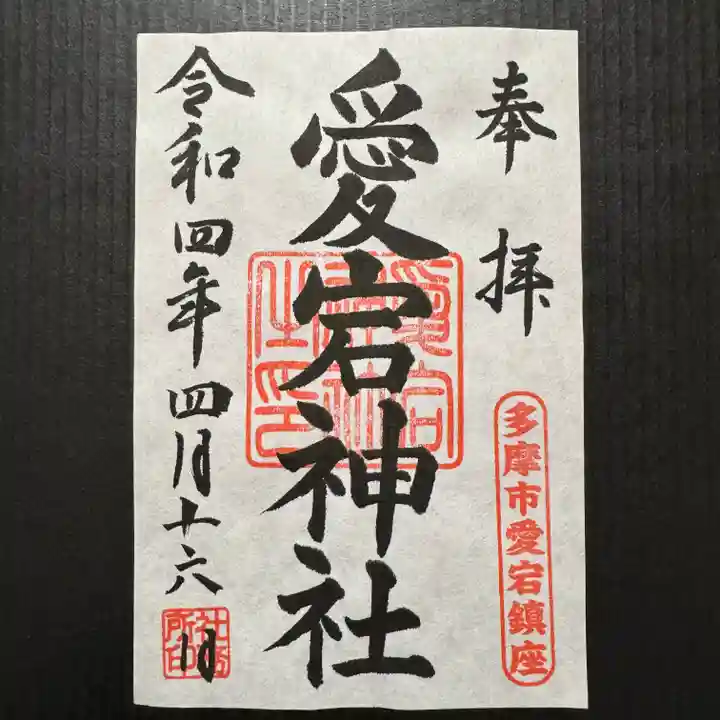 奉拝
多摩市愛宕鎮座
愛宕神社
愛宕神社之印
令和四年四月十六日
社務所印